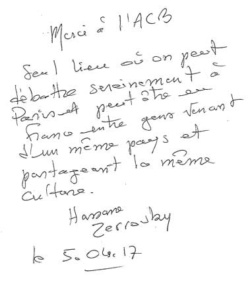 Merci à l'ACB
Seul lieu où on peut
débattre sereinement à
Paris et peut être en
France entre gens venant
d'un même pays et
partageant la même
culture.
Hassane
Zerrouky
le 5.04.17